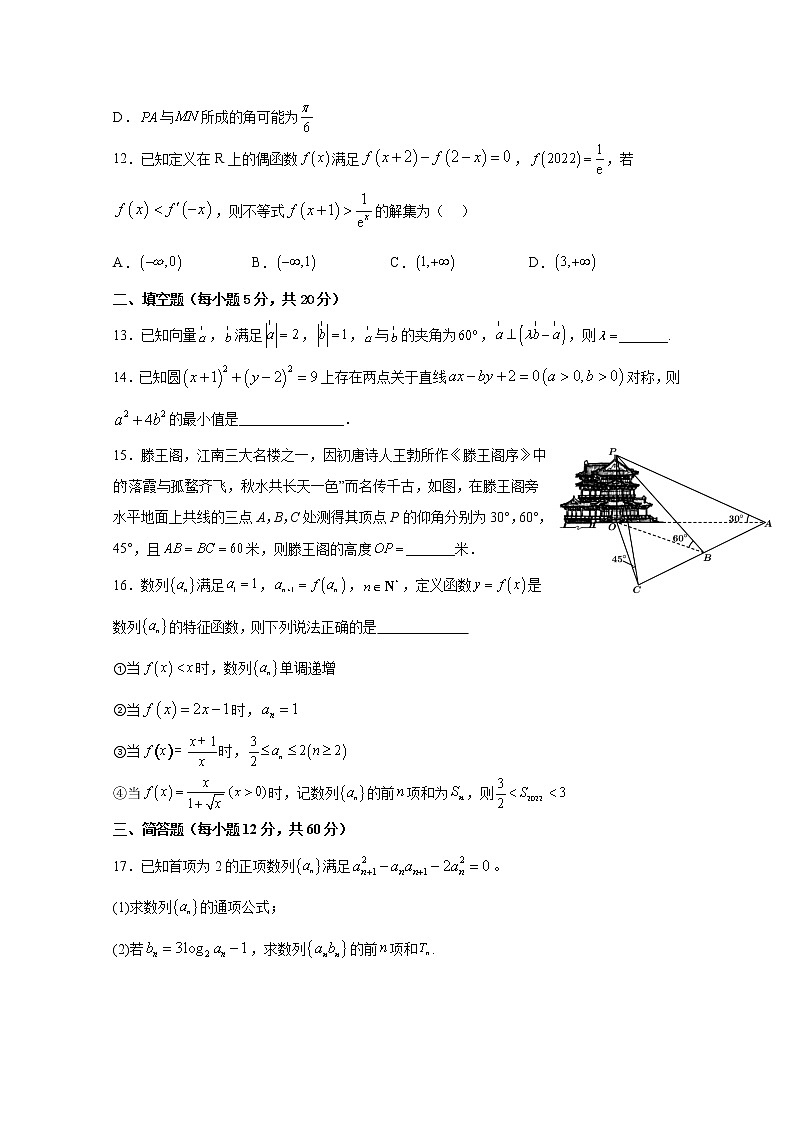 D．PA与MN所成的角可能为π/6
12．已知定义在 R 上的偶函数 f(x) 满足 f(x+2)−f(2−x)=0，f(2022)=1/e，若
f(x)<f′(−x)，则不等式 f(x+1)>1/e^x 的解集为（ ）
A．(−∞,0) B．(−∞,1) C．(1,+∞) D．(3,+∞)
二、填空题（每小题 5 分，共 20 分）
13．已知向量a，b满足|a|=2，|b|=1，a与b的夹角为60°，a⊥(λb−a)，则λ=_______.
14．已知圆(x+1)²+(y−2)²=9上存在两点关于直线ax−by+2=0(a>0,b>0)对称，则
a²+4b²的最小值是_______________．
15．滕王阁，江南三大名楼之一，因初唐诗人王勃所作《滕王阁序》中
的落霞与孤鹜齐飞，秋水共长天一色”而名传千古，如图，在滕王阁旁
水平地面上共线的三点 A,B,C 处测得其顶点 P 的仰角分别为 30°,60°,
45°，且 AB=BC=60米，则滕王阁的高度OP=_______米．
P
O
30°
A
60°
B
45°
C
16．数列{aₙ}满足a₁=1，aₙ₊₁=f(aₙ)，n∈N*，定义函数y=f(x)是
数列{aₙ}的特征函数，则下列说法正确的是_____________
①当 f(x)<x时，数列{aₙ}单调递增
②当 f(x)=2x−1时，aₙ=1
③当 f(x)=(x+1)/x时，3/2≤aₙ≤2(n≥2)
④当 f(x)=x/(1+√x)(x>0)时，记数列{aₙ}的前n项和为Sₙ，则3/2<S₂₀₂₂<3
三、简答题（每小题 12 分，共 60 分）
17．已知首项为 2 的正项数列{aₙ}满足aₙ₊₁²−aₙaₙ₊₁−2aₙ²=0。
(1)求数列{aₙ}的通项公式；
(2)若bₙ=3log₂aₙ−1，求数列{aₙbₙ}的前n项和Tₙ．